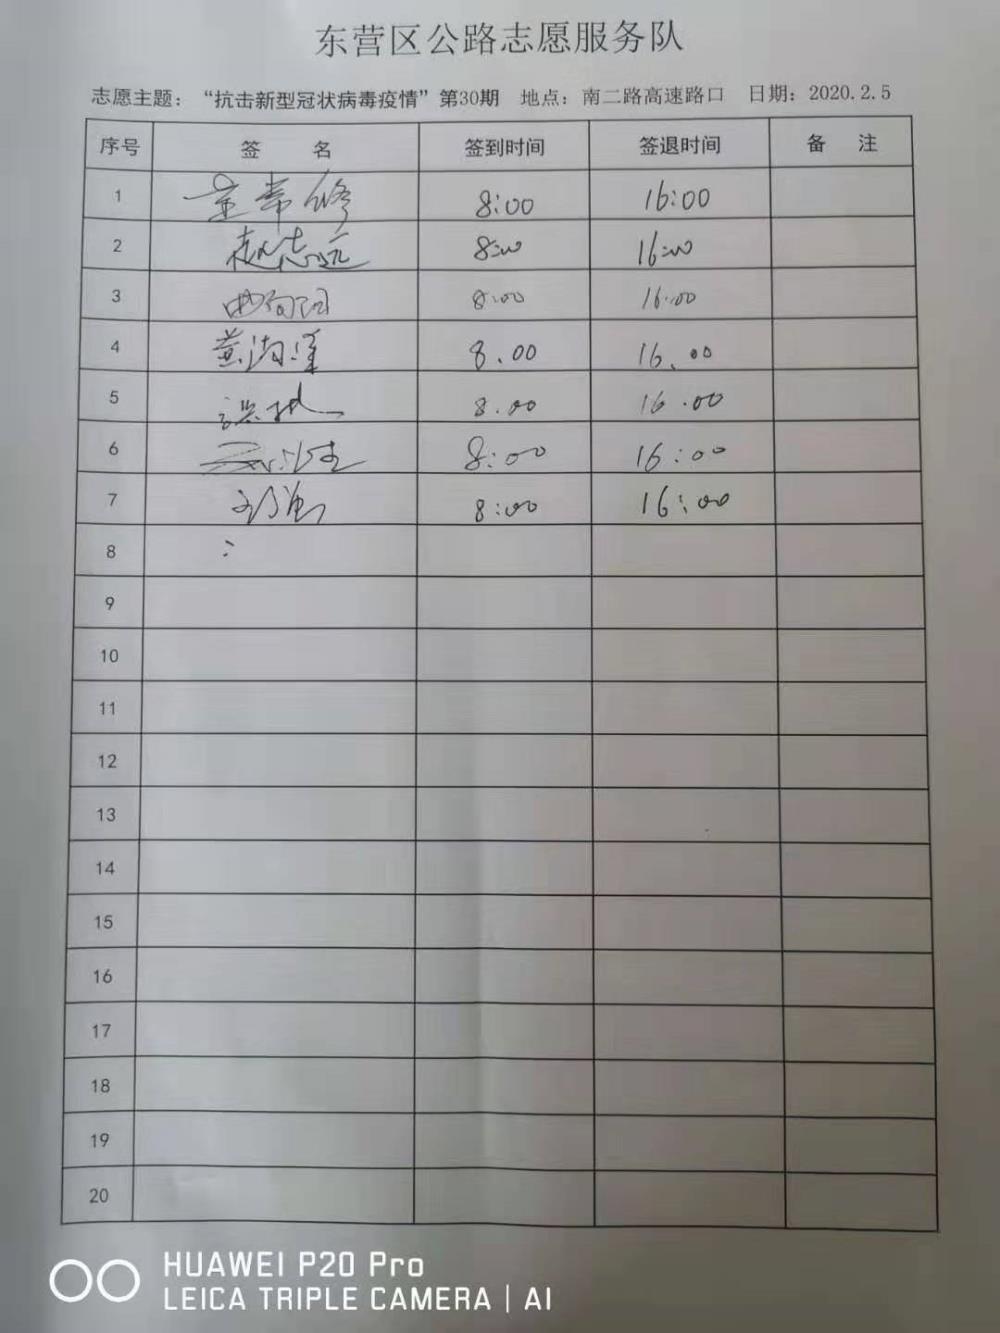 东营区公路志愿服务队
志愿主题：“抗击新型冠状病毒疫情”第30期 地点：南二路高速路口 日期：2020.2.5
序号 签 名 签到时间 签退时间 备 注
1 8:00 16:00
2 赵志远 8:00 16:00
3 8:00 16:00
4 8.00 16.00
5 8.00 16.00
6 8:00 16:00
7 8:00 16:00
8
9
10
11
12
13
14
15
16
17
18
19
20
HUAWEI P20 Pro
LEICA TRIPLE CAMERA | AI